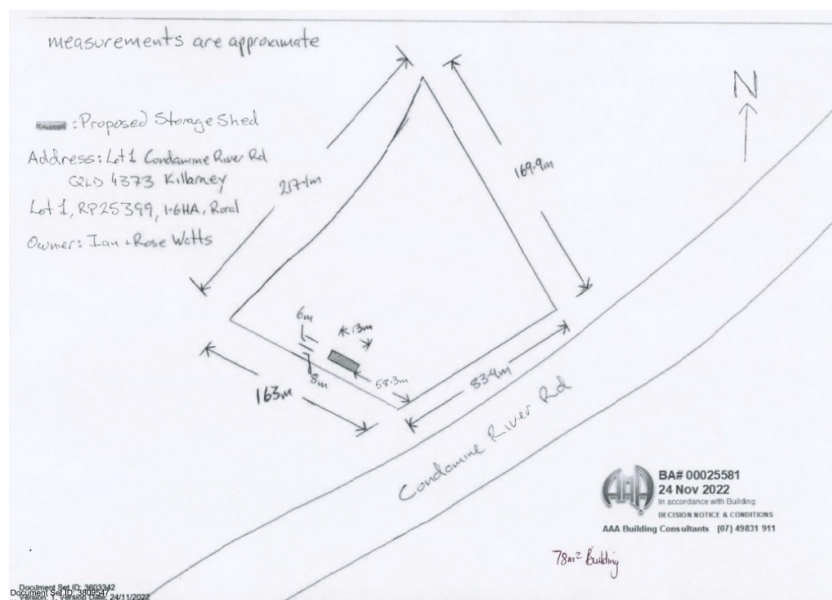 measurements are approximate
N
: Proposed Storage Shed
Address: Lot 1 Condamine River Rd
QLD 4373 Killarney
Lot 1, RP25399, 1.6HA, Rural
Owner: Ian + Rose Watts
217.1m
169.9m
6m
13m
8m
58.3m
163m
83.9m
Condamine River Rd
AAA
BA# 00025581
24 Nov 2022
In accordance with Building
DECISION NOTICE & CONDITIONS
AAA Building Consultants (07) 49831 911
78m² Building
Document Set ID: 3603342
Document Set ID: 3809547
Version: 1, Version Date: 24/11/2022